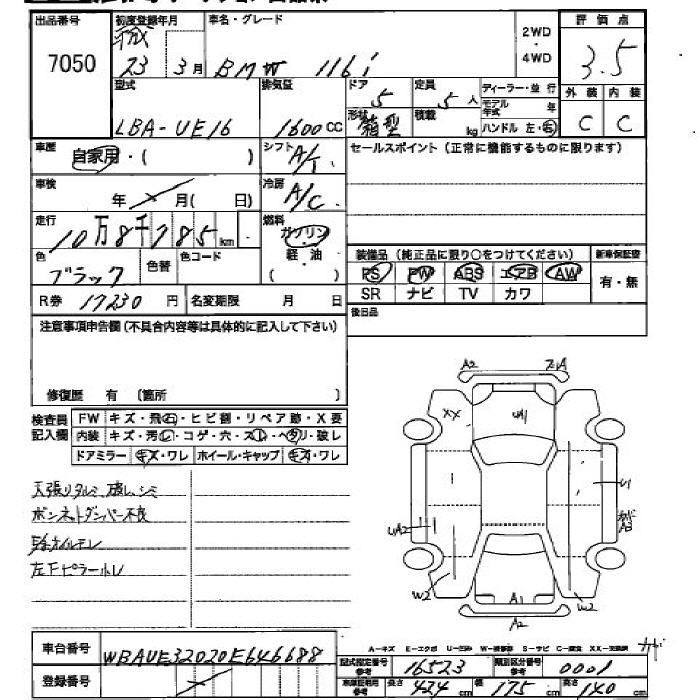 出品番号
7050
初度登録年月
平成
23 3月
車名・グレード
BMW 116i
2WD
・
4WD
評価点
3.5
外装 内装
C C
型式
LBA-UE16
排気量
1600cc
ドア
5
定員
5人
形状
箱型
積載
kg
ディーラー・並行
モデル年式 年
ハンドル 左・右
車歴
自家用・( )
シフト
A/T
セールスポイント (正常に機能するものに限ります)
車検
年 月( 日)
冷房
A/C
走行
10万8千785km
燃料
ガソリン
軽・油
( )
色
ブラック
色替
色コード
装備品 (純正品に限り○をつけてください)
新車保証書
PS PW ABS エアB AW
SR ナビ TV カワ
有・無
R券 17230円
名変期限 月 日
後日品
注意事項申告欄 (不具合内容等は具体的に記入して下さい)
修復歴 有 (箇所 )
検査員
記入欄
FW キズ・飛石・ヒビ割・リペア跡・X要
内装 キズ・汚レ・コゲ・穴・スレ・ヘタリ・破レ
ドアミラー キズ・ワレ ホイール・キャップ キズ・ワレ
天張りタルミ、破レ、シミ
ボンネットダンパー不良
左下ピラー凹レ
A2
XX
UA1
UA2
U1
W2
A1
W2
A2
A-キズ E-エクボ U-凹み W-補修跡 S-サビ C-腐食 XX-交換済
車台番号
WBAUE32020E646688
登録番号
型式指定番号
参考
16523
類別区分番号
参考
0001
車庫証明用
参考
長さ 424cm 幅 175cm 高さ 140cm